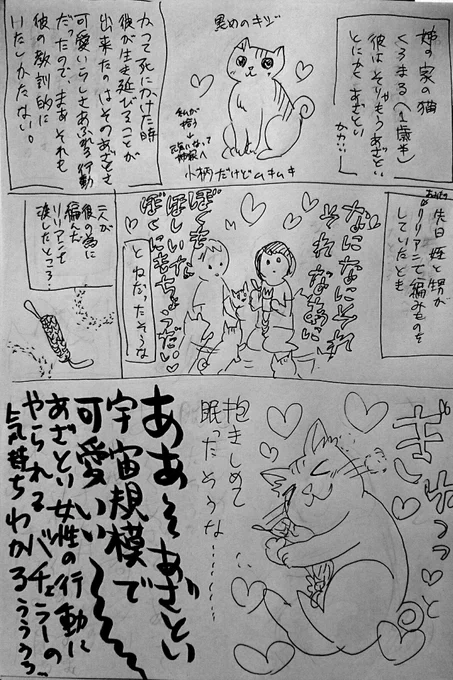 姉の家の猫
くろまる(1歳半)
彼はそりゃもうあざとい
とにかくあざとい
黒めのキジ
私が
拾う
↓
神様へ
小柄だけどムキムキ
かつて死にかけた時
彼が生き延びることが
出来たのはそのあざとさ
可愛いらしさあふれる行動
だったので、まあそれも
彼の教訓的に
いたしかたない。
先日 姪と甥が
リリアンで編みものを
していたとき
なになにそれ
それなぁに
ぼくも
ほしいな
ぼくにもちょうだい
とねだったそうな
二人が
彼の為に
編んだ
リリアンを
渡したところ…
ぎゅっっと
抱きしめて
眠ったそうな……
ああぁあざとい
宇宙規模で
可愛いい〜
あざとい女性の行動に
やられるバチェラーの
気持ちわかるぅぅぅぅ